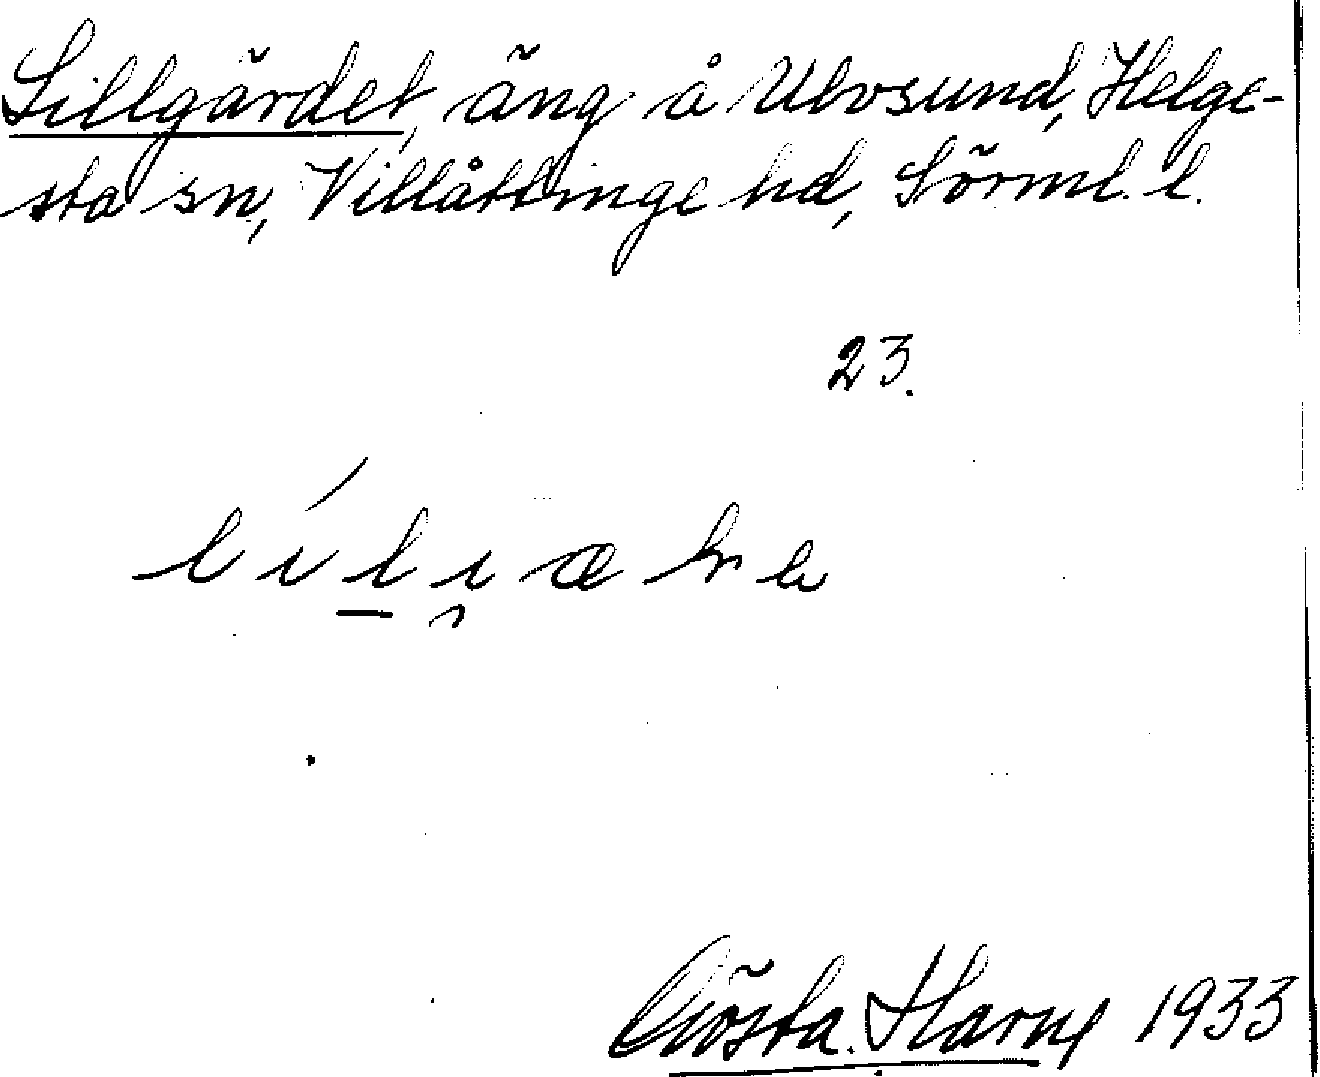 Lillgärdet, äng å Ulvsund, Helge-
sta sn, Villåttinge hd, Sörml. l.
23.
Gösta Harne 1933